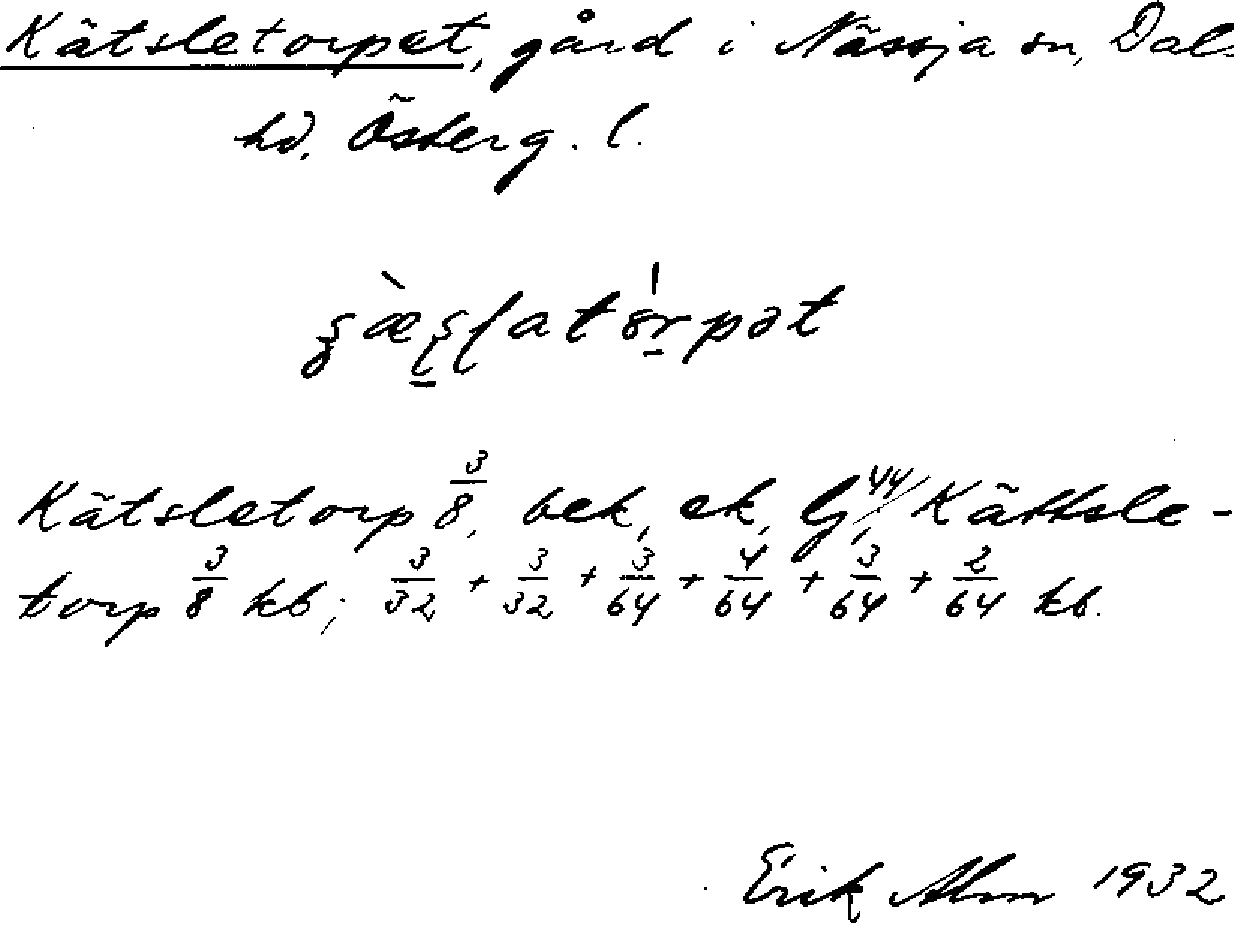 Kätsletorpet, gård i Nässja sn, Dals
hd, Österg. l.
Kätsletorp 3/8, bek, ek, 44/ Kättsle-
torp 3/8 kb; 3/32 + 3/32 + 3/64 + 4/64 + 3/64 + 2/64 kb.
Erik Alm 1932